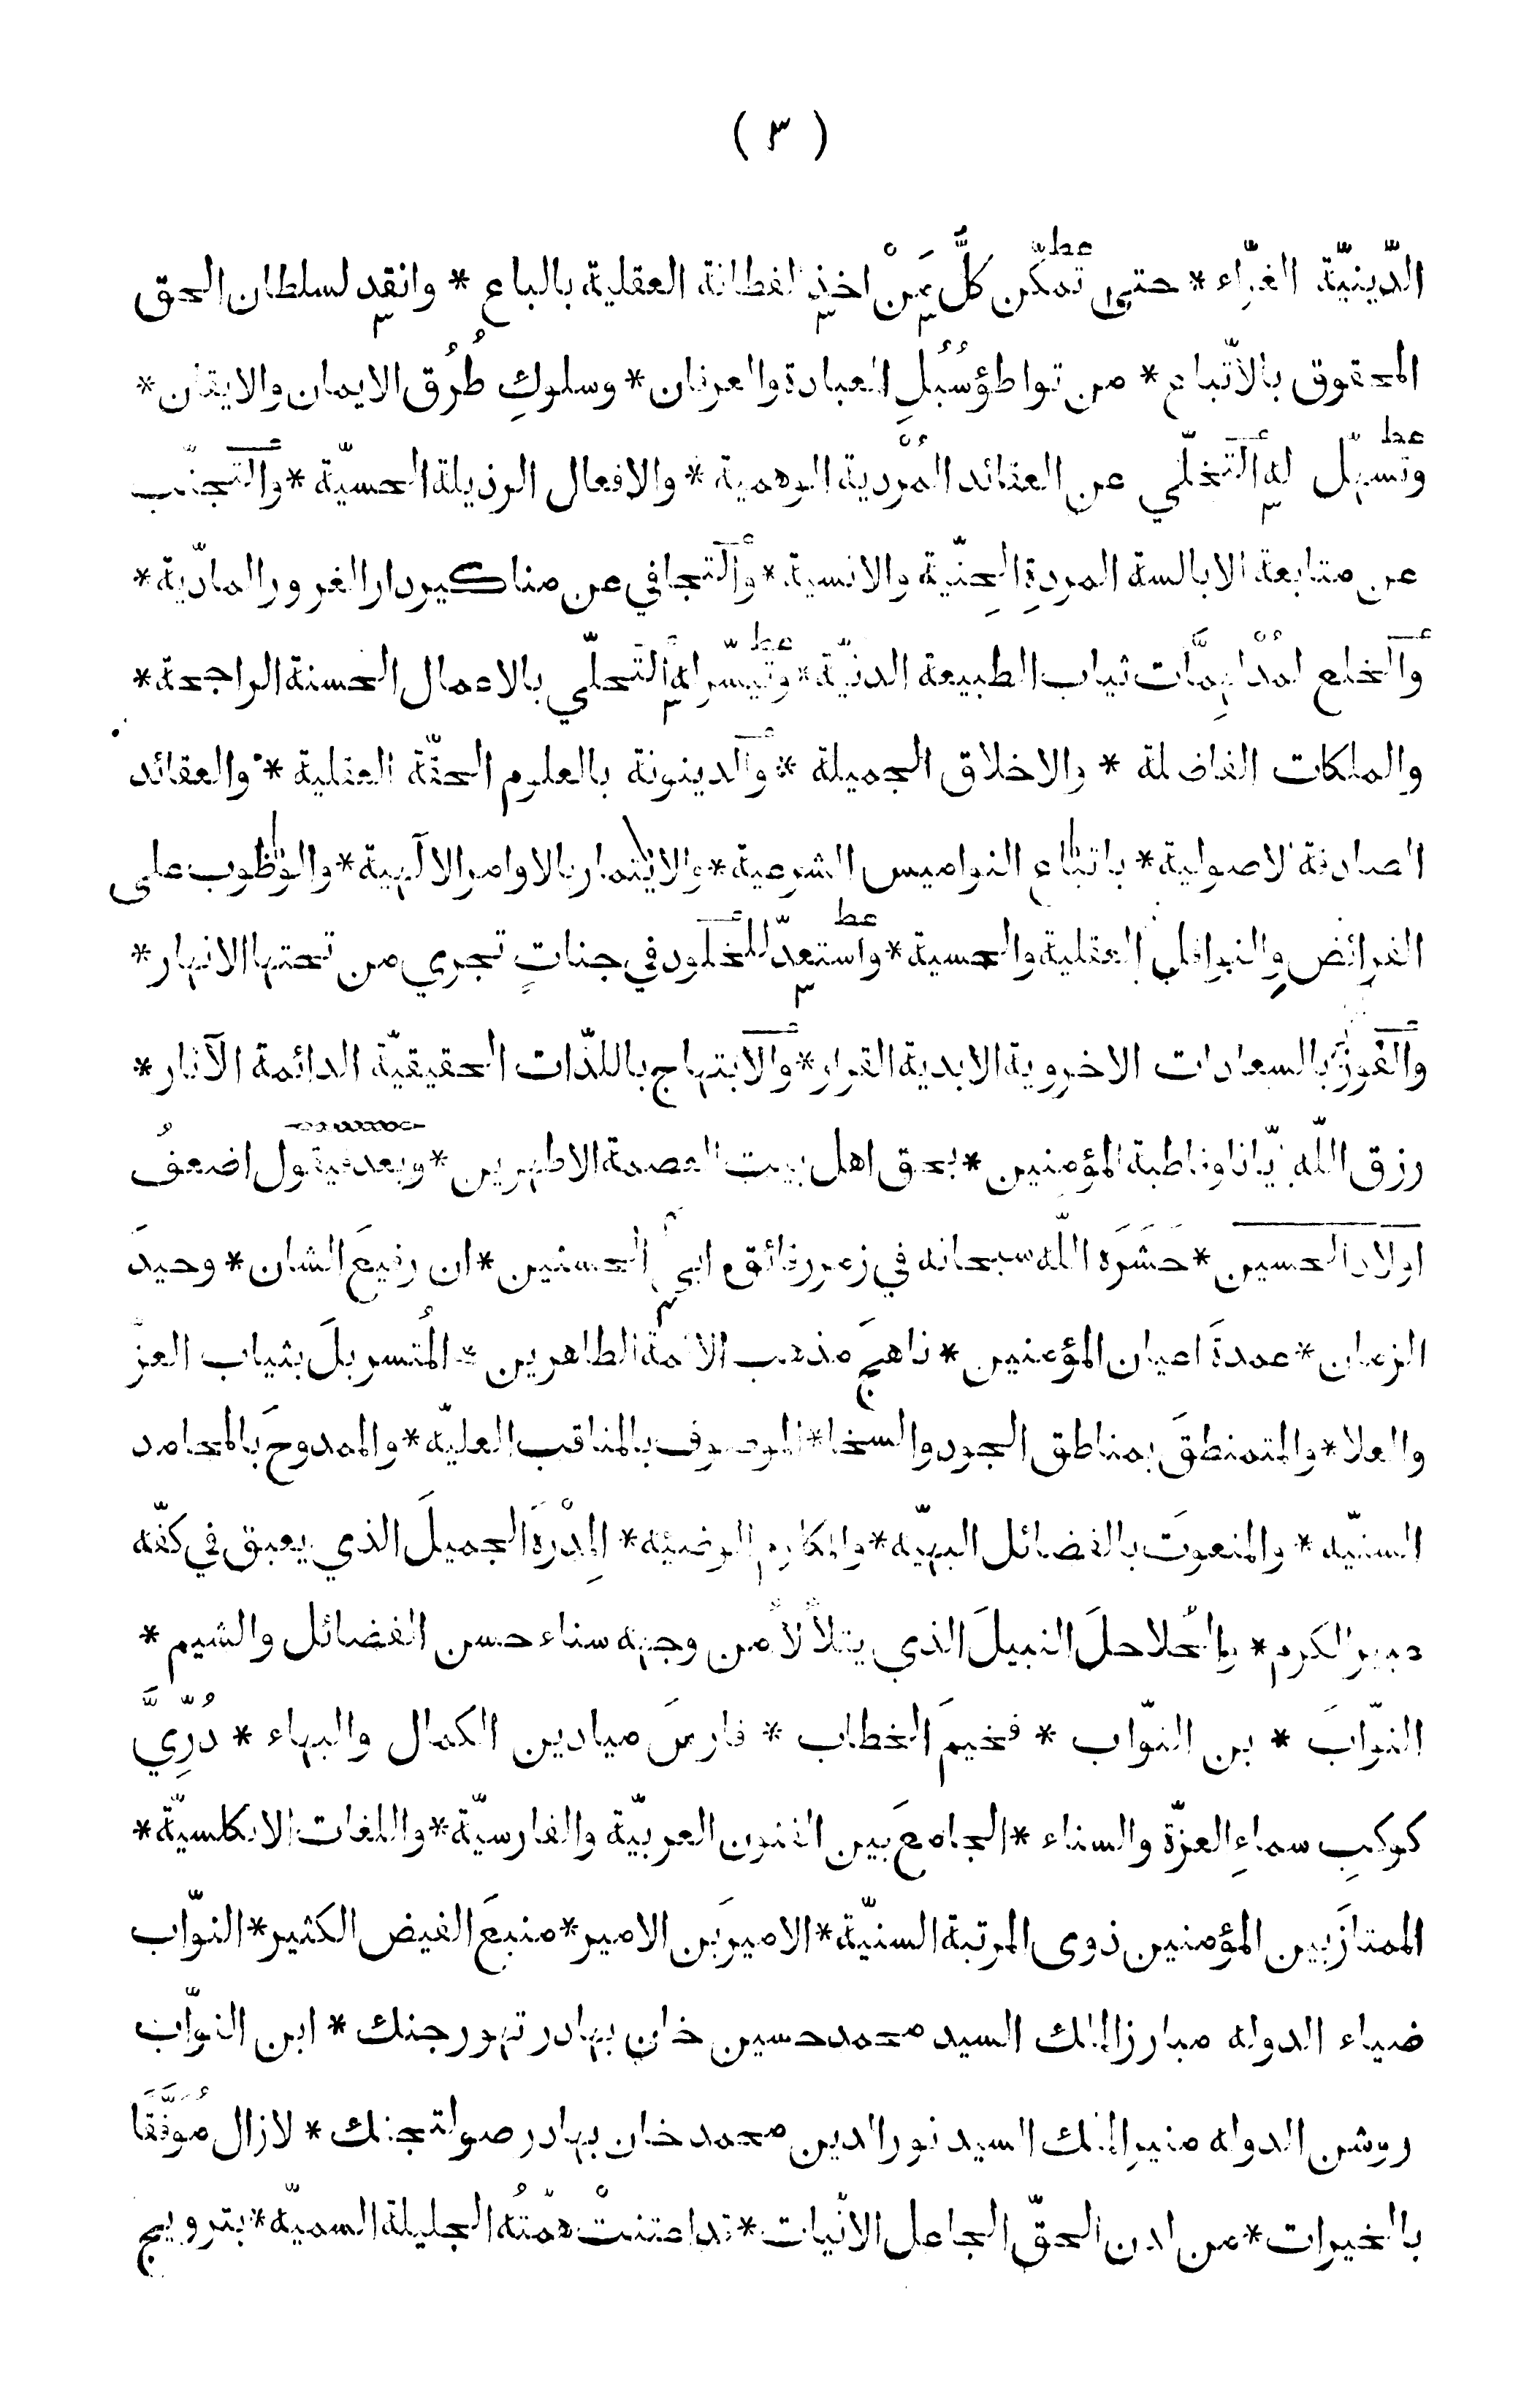 ( ٣ )
الدّينيّة الغرّاء * حتى تمكّن كلَّ مَنْ اخذ الفطانة العقلية بالباع * وانقد لسلطان الحق
المحقوق بالاتّباع * من تواطؤ سُبُلِ العبادة والعرفان * وسلوكِ طُرُق الايمان والايقان *
وتسهّل له التخلّي عن العقائد المُرْدية الوهمية * والافعال الرذيلة الحسيّة * والتجنّب
عن متابعة الابالسة المردةِ الجِنّية والانسية * والتجافي عن مناكير دار الغرور المادّية *
والخلع لمُدْلهِمَّات ثياب الطبيعة الدنيّة * وتيسّر له التحلّي بالاعمال الحسنة الراجحة *
والملكات الفاضلة * والاخلاق الجميلة * والدينونة بالعلوم الحقّة العقلية * والعقائد
الصادقة الاصولية * باتباع النواميس الشرعية * والايتمار بالاوامر الالٓهية * والوظوب على
الفرائض والنوافل العقلية والحسية * واستعدّ للخلود في جناتٍ تجري من تحتها الانهار *
والفوز بالسعادات الاخروية الابدية القرار * والابتهاج باللذّات الحقيقيّة الدائمة الآثار *
رزق اللّه ايّانا وقاطبة المؤمنين * بحق اهل بيت العصمة الاطهرين * وبعد فيقول اضعفُ
اولاد الحسين * حَشَرَه اللّه سبحانه في زمر رفائق ابي الحسنين * ان رفيعَ الشان * وحيدَ
الزمان * عمدةَ اعيان المؤمنين * ناهجَ مذهب الائمة الطاهرين * المُتسربلَ بثياب العزّ
والعلا * والمتمنطقَ بمناطق الجود والسخا * الموصوف بالمناقب العليّه * والممدوحَ بالمحامد
السنيّه * والمنعوتَ بالفضائل البهيّه * والمكارم الرضيّه * المِدْرَة الجميلَ الذي يعبق في كفّه
عبير الكرم * والحُلاحلَ النبيلَ الذي يتلألأ من وجهه سناء حسن الفضائل والشيم *
النوّابَ * بن النوّاب * فخيمَ الخطاب * فارسَ ميادين الكمال والبهاء * دُرِّيَّ
كوكبِ سماءِ العزّة والسناء * الجامعَ بين الفنون العربيّة والفارسيّة * واللغات الانكلسيّة *
الممتازَ بين المؤمنين ذوى المرتبة السنيّة * الاميرَ بن الامير * منبعَ الفيض الكثير * النوّاب
ضياء الدوله مبارز الملك السيد محمد حسين خان بهادر تهور جنك * ابن النوّاب
روشن الدوله منير الملك السيد نور الدين محمد خان بهادر صولتجنك * لازال مُوَفَّقَا
بالخيرات * من لدن الحقّ الجاعل الانّيات * قد اعتنتْ همّتُه الجليلة السميّه * بترويج